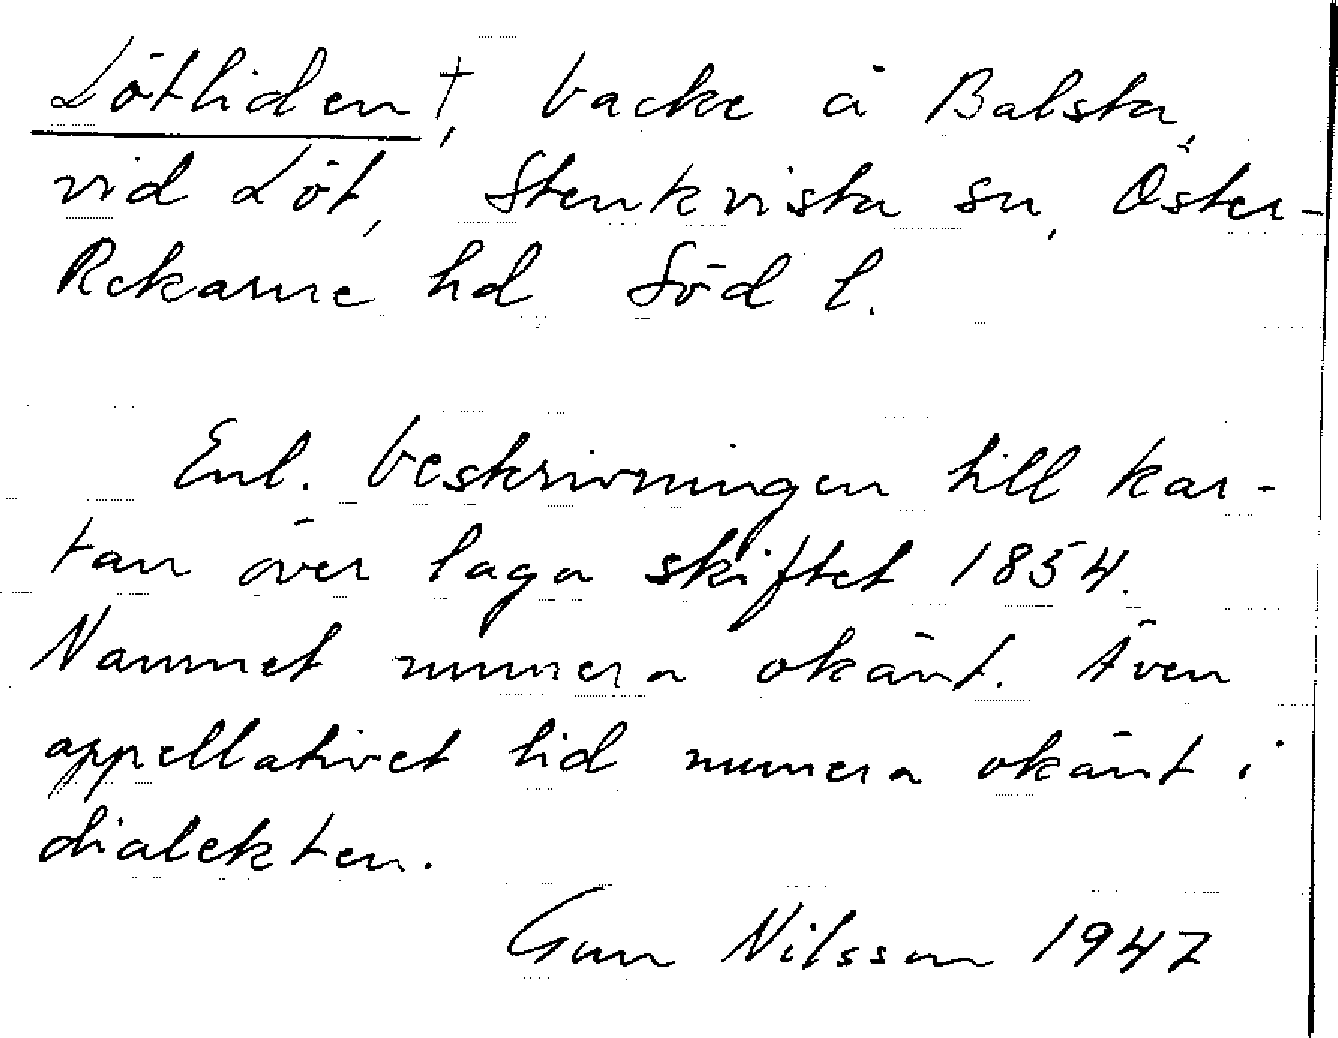 Lötliden †, backe å Balsta,
vid Löt, Stenkvista sn, Öster-
Rekarne hd Söd l.
Enl. beskrivningen till kar-
tan över laga skiftet 1854.
Namnet numera okänt. Även
appellativet lid numera okänt i
dialekten.
Gun Nilsson 1947